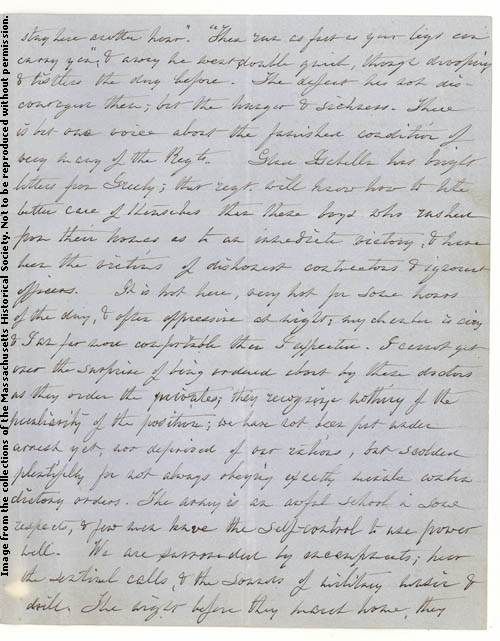 stay here another hour". "Then run as fast as your legs can
carry you", & away he went double quick, though drooping
& listless the day before. The defeat has not dis-
couraged them; but the hunger & sickness. There
is but one voice about the famished condition of
very many of the Regts. Glen has brought
letters from Greely; that regt. will know how to take
better care of themselves than these boys who rushed
from their homes as to an immediate victory, & have
been the victims of dishonest contractors & ignorant
officers. It is hot here, very hot for some hours
of the day, & often oppressive at night; my chamber is airy
& I am far more comfortable than I expected. I cannot get
over the surprise of being ordered about by these doctors
as they order the privates; they recognize nothing of the
peculiarity of the position; we have not been put under
arrest yet, nor deprived of our rations, but scolded
plentifully for not always obeying exactly minute contra-
dictory orders. The army is an awful school in some
respects, & few men have the self-control to use power
well. We are surrounded by encampments; hear
the sentinel calls, & the sounds of military music &
drill. The night before they march home, they
Image from the collections of the Massachusetts Historical Society. Not to be reproduced without permission.